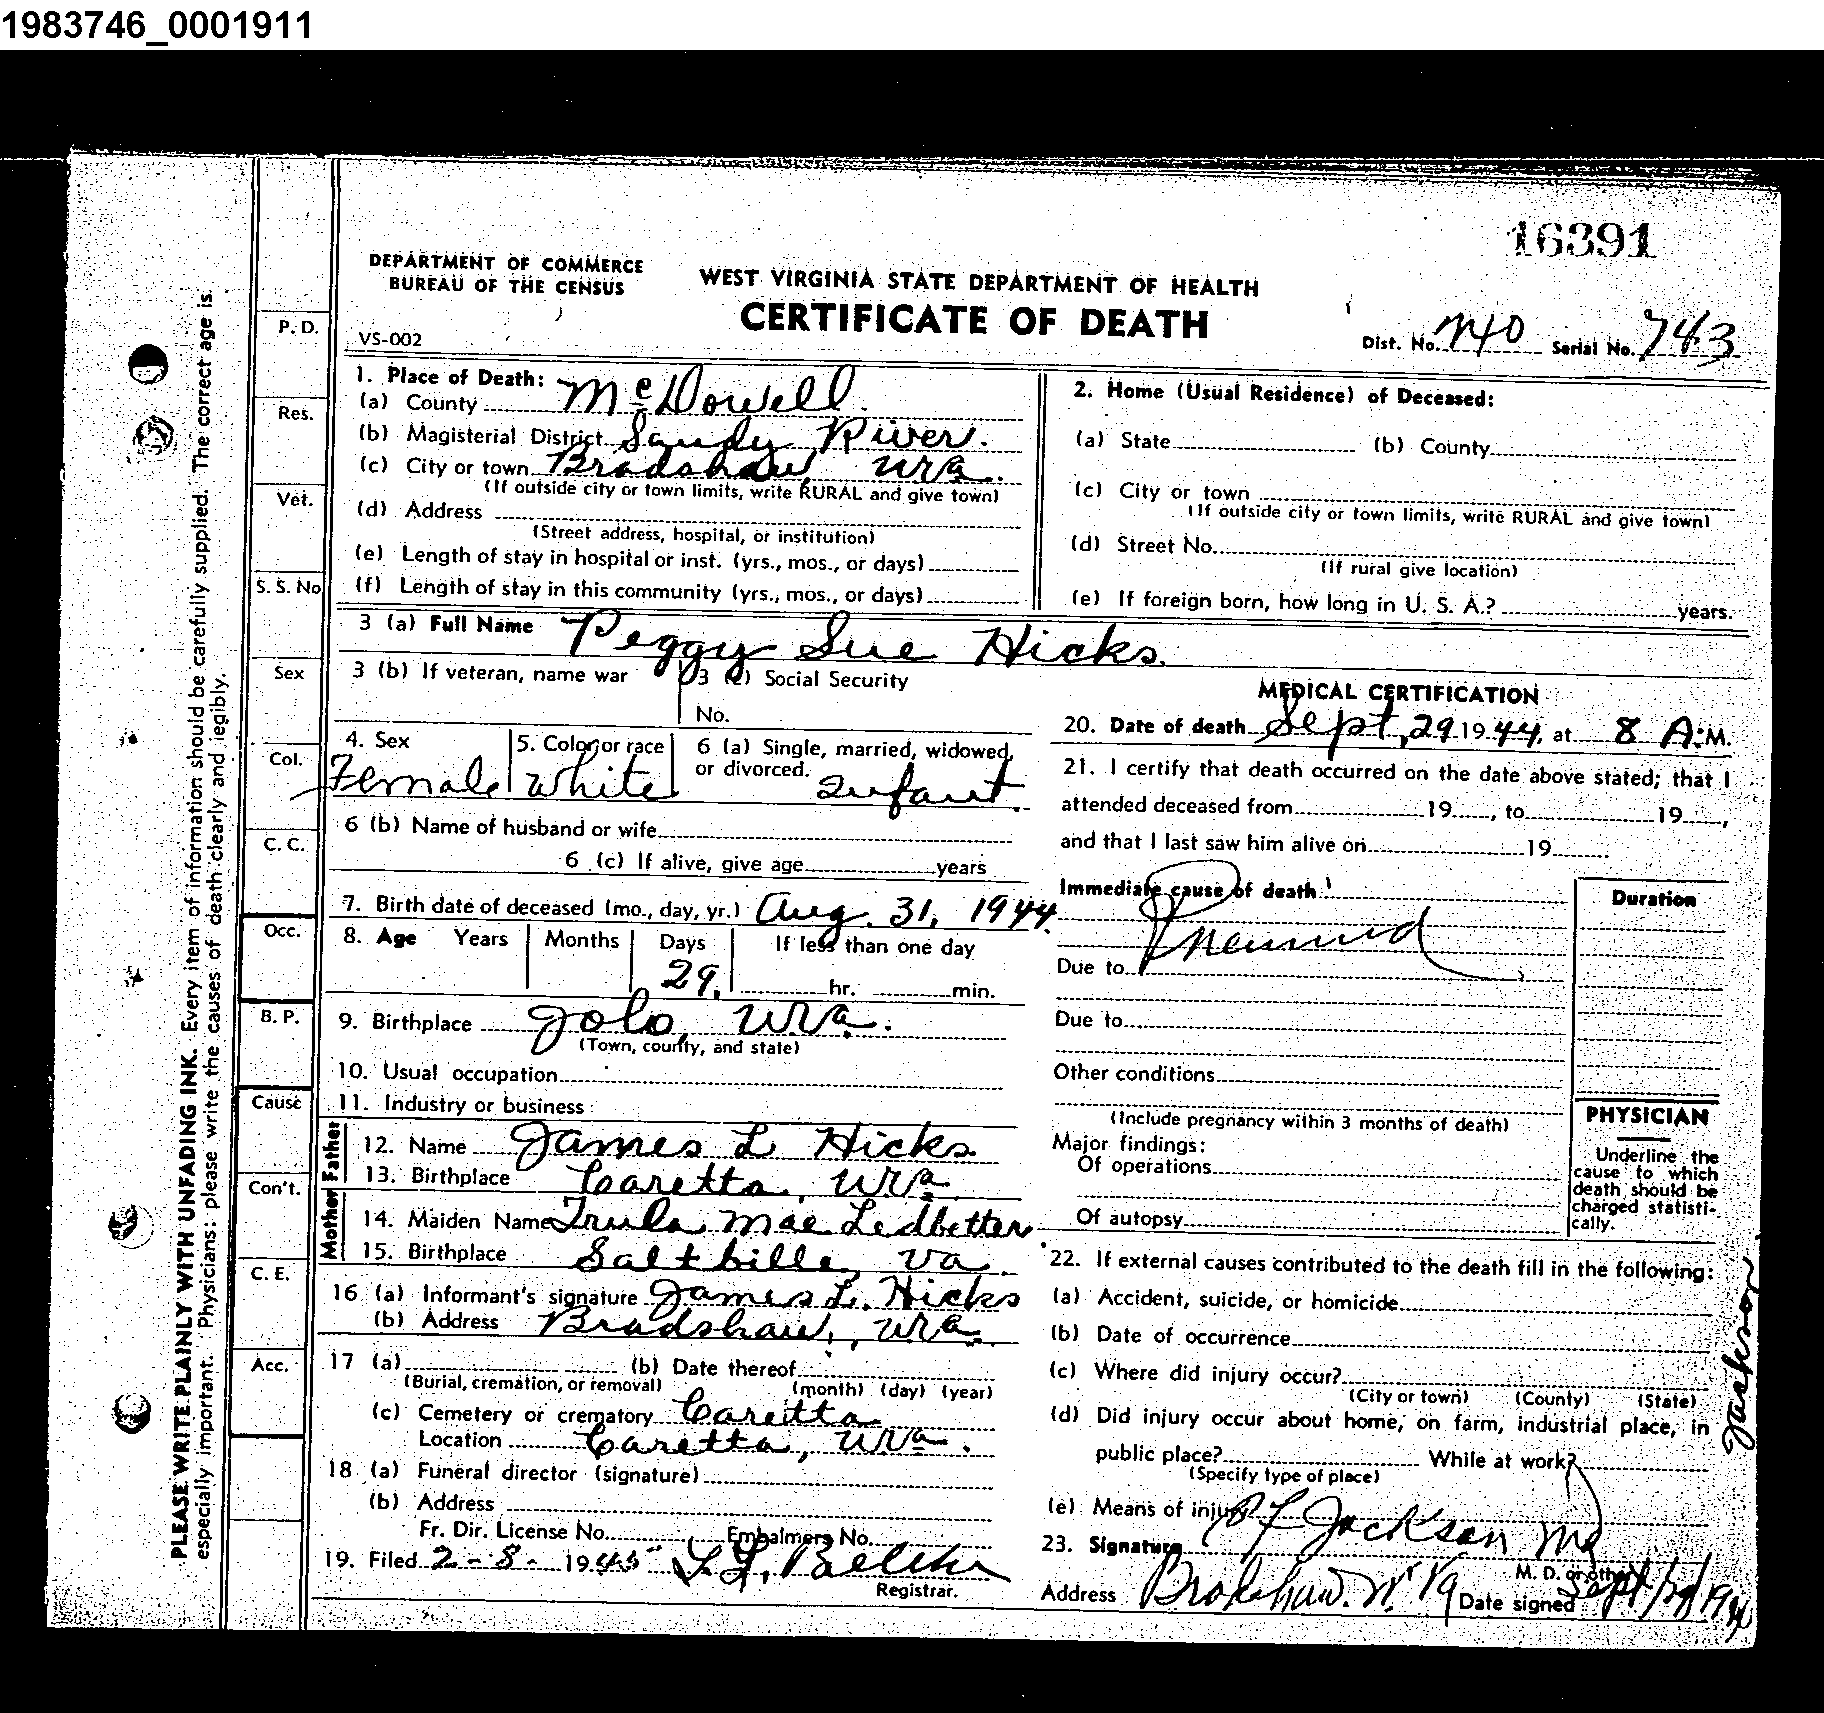 1983746_0001911
16391
DEPARTMENT OF COMMERCE
BUREAU OF THE CENSUS
WEST VIRGINIA STATE DEPARTMENT OF HEALTH
CERTIFICATE OF DEATH
VS-002
Dist. No. 740 Serial No. 743
PLEASE WRITE PLAINLY WITH UNFADING INK. Every item of information should be carefully supplied. The correct age is
especially important. Physicians: please write the causes of death clearly and legibly.
P. D.
Res.
Vet.
S. S. No
Sex
Col.
C. C.
Occ.
B. P.
Cause
Con't.
C. E.
Acc.
1. Place of Death:
(a) County McDowell
(b) Magisterial District Sandy River.
(c) City or town Bradshaw, WVa.
(If outside city or town limits, write RURAL and give town)
(d) Address
(Street address, hospital, or institution)
(e) Length of stay in hospital or inst. (yrs., mos., or days)
(f) Length of stay in this community (yrs., mos., or days)
2. Home (Usual Residence) of Deceased:
(a) State (b) County
(c) City or town
(If outside city or town limits, write RURAL and give town)
(d) Street No.
(If rural give location)
(e) If foreign born, how long in U. S. A.? years.
3 (a) Full Name Peggy Sue Hicks.
3 (b) If veteran, name war
3 (c) Social Security
No.
4. Sex Female
5. Color or race White
6 (a) Single, married, widowed,
or divorced. Infant.
6 (b) Name of husband or wife
6 (c) If alive, give age years
7. Birth date of deceased (mo., day, yr.) Aug. 31, 1944.
8. Age Years Months Days If less than one day
29. hr. min.
9. Birthplace Jolo, WVa.
(Town, county, and state)
10. Usual occupation
11. Industry or business
Father
12. Name James L Hicks
13. Birthplace Caretta, WVa
Mother
14. Maiden Name Trula Mae Ledbetter
15. Birthplace Saltbille, Va.
16 (a) Informant's signature James L. Hicks
(b) Address Bradshaw, WVa.
17 (a) (b) Date thereof
(Burial, cremation, or removal) (month) (day) (year)
(c) Cemetery or crematory Caretta
Location Caretta, WVa.
18 (a) Funeral director (signature)
(b) Address
Fr. Dir. License No. Embalmers No.
19. Filed 2-8- 1945
Registrar.
MEDICAL CERTIFICATION
20. Date of death Sept, 29 19 44, at 8 A.M.
21. I certify that death occurred on the date above stated; that I
attended deceased from 19 , to 19 ,
and that I last saw him alive on 19
Immediate cause of death
Duration
Due to
Due to
Other conditions
(Include pregnancy within 3 months of death)
Major findings:
Of operations
Of autopsy
PHYSICIAN
Underline the
cause to which
death should be
charged statisti-
cally.
22. If external causes contributed to the death fill in the following:
(a) Accident, suicide, or homicide
(b) Date of occurrence
(c) Where did injury occur?
(City or town) (County) (State)
(d) Did injury occur about home, on farm, industrial place, in
public place? While at work?
(Specify type of place)
(e) Means of injury
23. Signature Jackson MD
M. D. or other
Address Bradshaw. W. Va Date signed Sept/29/1944
Jackson